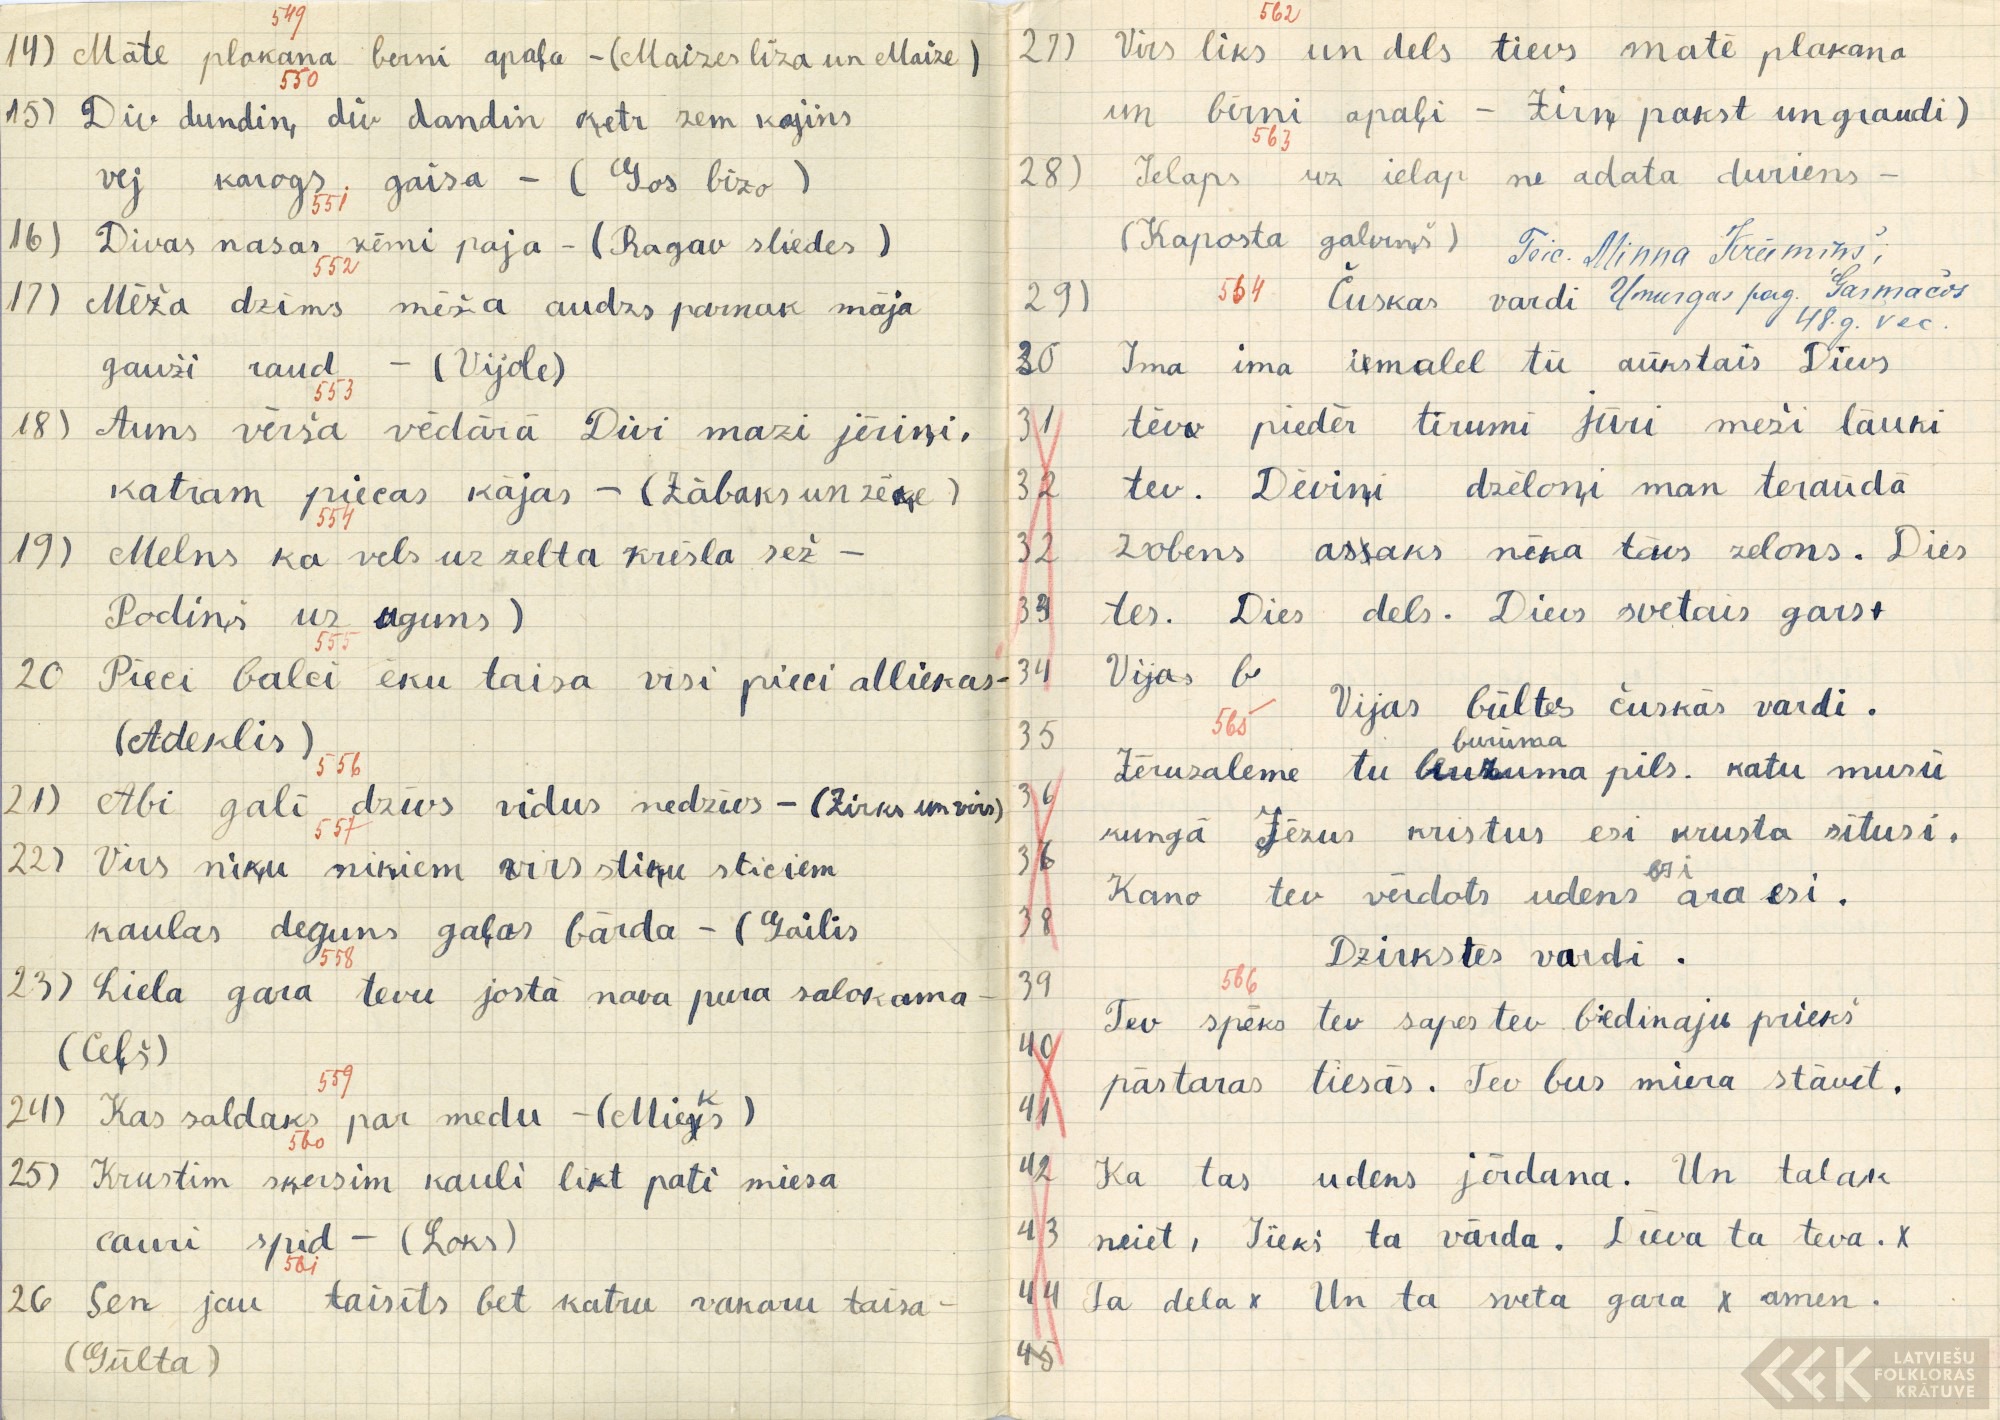 549
14) Māte plakana berni apaļa – (Maizes līza un Maize)
550
15) Div dundiņ, div dandin ķetr zem kājins
vej karogs gaisa – (Gos bizo)
551
16) Divas nasas kēmi paja – (Ragav sliedes)
552
17) Mēža dzims mēža audzs parnak māja
gauži raud – (Vijole)
553
18) Auns vērša vēdārā Divi mazi jēriņi.
katram piecas kājas – (Zābaks un zēķe)
554
19) Melns ka vels uz zelta krēsla sež –
Podiņš uz uguns)
555
20 Pieci balci ēku taisa visi pieci alliekas –
(Adeklis)
556
21) Abi galī dzīvs vidus nedzīvs – (Zirks un virs)
557
22) Virs niķu niķiem virs stiķu sticiem
kaulas deguns gaļas bārda – (Gailis
558
23) Liela gara tevu jostā nava pura salokama –
(Ceļš)
559
24) Kas saldaks par medu – (Miegks)
560
25) Krustim sķersim kauli likt pati miesa
cauri spid – (Loks)
561
26 Sen jau taisīts bet katru vakaru taisa –
(Gūlta)
562
27) Virs liks un dels tievs matē plakana
un bērni apaļi – Zirņ pakst un graudi)
563
28) Ielaps uz ielap ne adata duriens –
(Kaposta galviņš) Teic. Minna Krūmiņš,
29) 564 Čuskas vardi Umurgas pag. Garmačos
48.g. vec.
30 Ima ima iemalel tū aūkstais Dievs
31 tēvu piedēr tīrumi jūri meži lāuki
32 tev. Dēviņi dzēloņi man teraūdā
32 zobens assaks nēka tāvs zelons. Dies
33 tes. Dies dels. Dievs svetais gars +
34 Vijas b
Vijas būltes čuskās vardi.
35 565
buruma
Jēruzaleme tu buzuma pils. katu musū
36
kungā Jēzus kristus esi krusta situsi.
36
esi
Kano tev vērdots udens ara esi.
38
Dzirkstes vardi.
39 566
Tev spēks tev sapes tev biedinaju priekš
40
pāstaras tiesās. Tev bus miera stāvēt.
41
42 Ka tas udens jōrdana. Un talak
43 neiet, Iiekš ta vārda. Dieva ta teva. x
44 Ta dela x Un ta sveta gara x amen.
45
LATVIEŠU
FOLKLORAS
KRĀTUVE